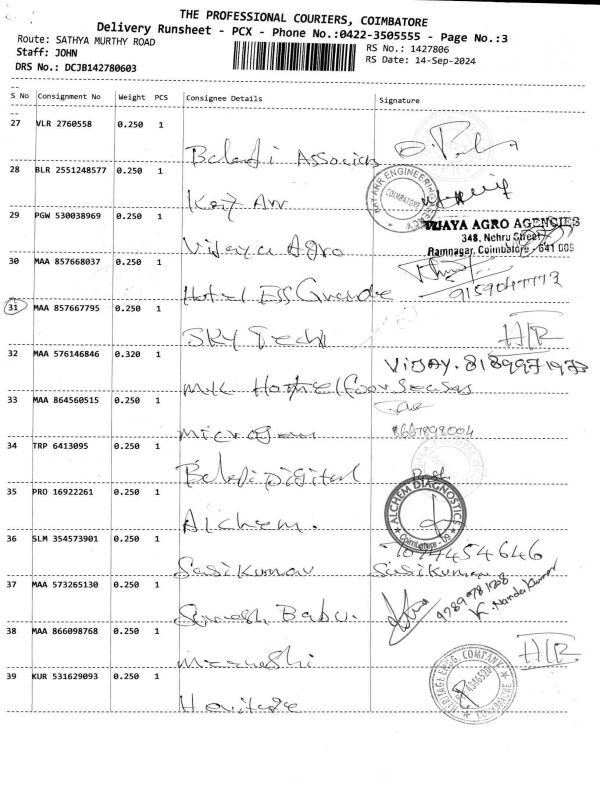 THE PROFESSIONAL COURIERS, COIMBATORE
Delivery Runsheet - PCX - Phone No.:0422-3505555 - Page No.:3
Route: SATHYA MURTHY ROAD
RS No.: 1427806
Staff: JOHN
RS Date: 14-Sep-2024
DRS No.: DCJB142780603
S No Consignment No Weight PCS Consignee Details Signature
27 VLR 2760558 0.250 1
Balaji Associates
28 BLR 2551248577 0.250 1
ENGINEERING
COIMBATORE
29 PGW 530038969 0.250 1
VIJAYA AGRO AGENCIES
348, Nehru Street
Vijaya Agro
Ramnagar, Coimbatore - 641 009
30 MAA 857668037 0.250 1
Hotel ESS Grande
31 MAA 857667795 0.250 1
SKY Tech
32 MAA 576146846 0.320 1
VIJAY. 8189971973
33 MAA 864560515 0.250 1
34 TRP 6413095 0.250 1
Balaji Digital
35 PRO 16922261 0.250 1
ALCHEM DIAGNOSTICS
Coimbatore - 09
Alchem.
36 SLM 354573901 0.250 1
Sasikumar Sasikumar
37 MAA 573265130 0.250 1
K. Nandakumar
Suresh Babu.
38 MAA 866098768 0.250 1
39 KUR 531629093 0.250 1
HERITAGE ENGG. COMPANY
COIMBATORE
Heritage